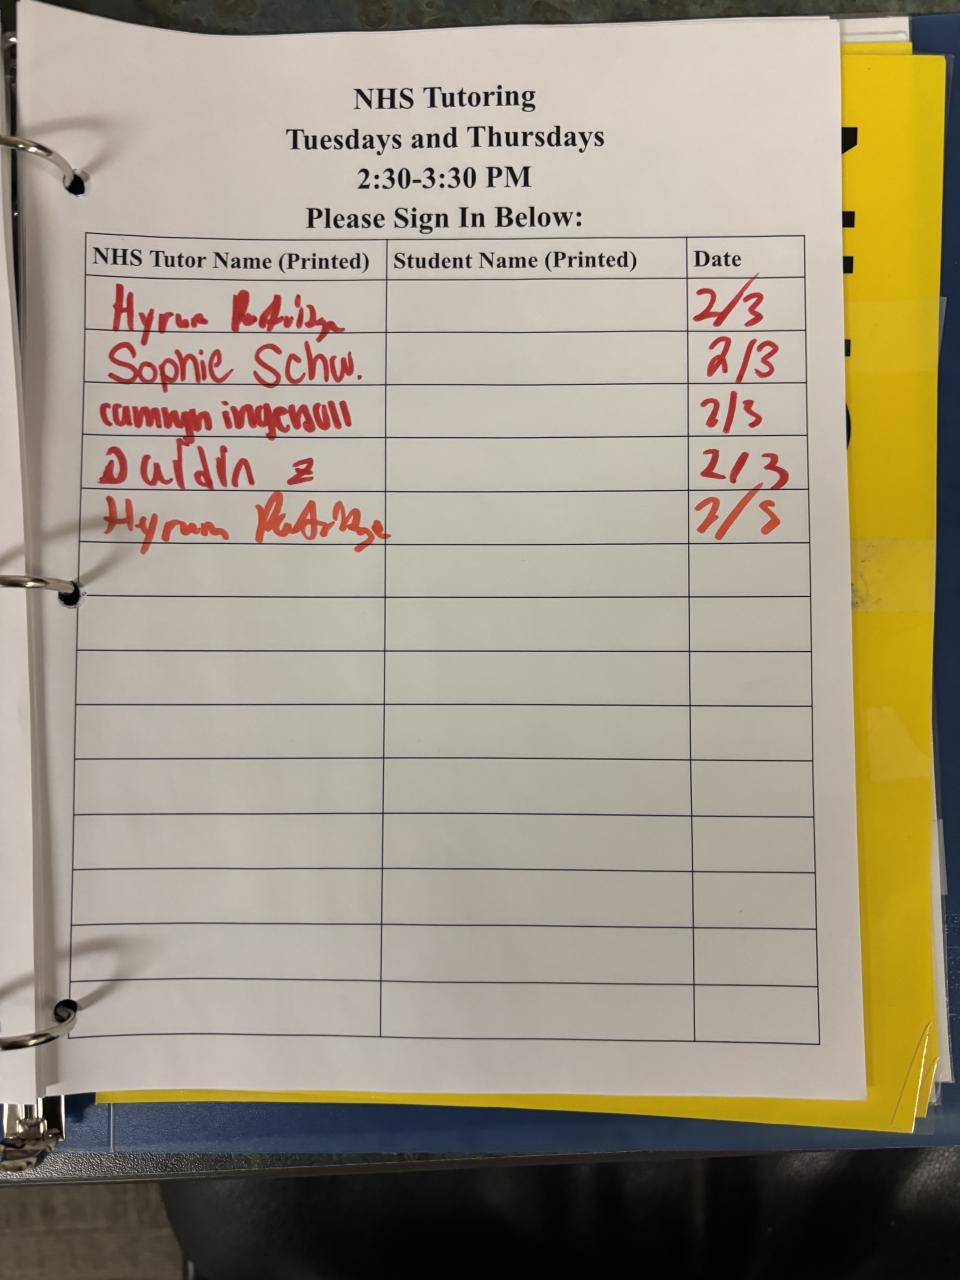 NHS Tutoring
Tuesdays and Thursdays
2:30-3:30 PM
Please Sign In Below:
NHS Tutor Name (Printed) Student Name (Printed) Date
Hyrum 2/3
Sophie Schw. 2/3
camryn ingersoll 2/3
Z 2/3
Hyrum Partridge 2/5